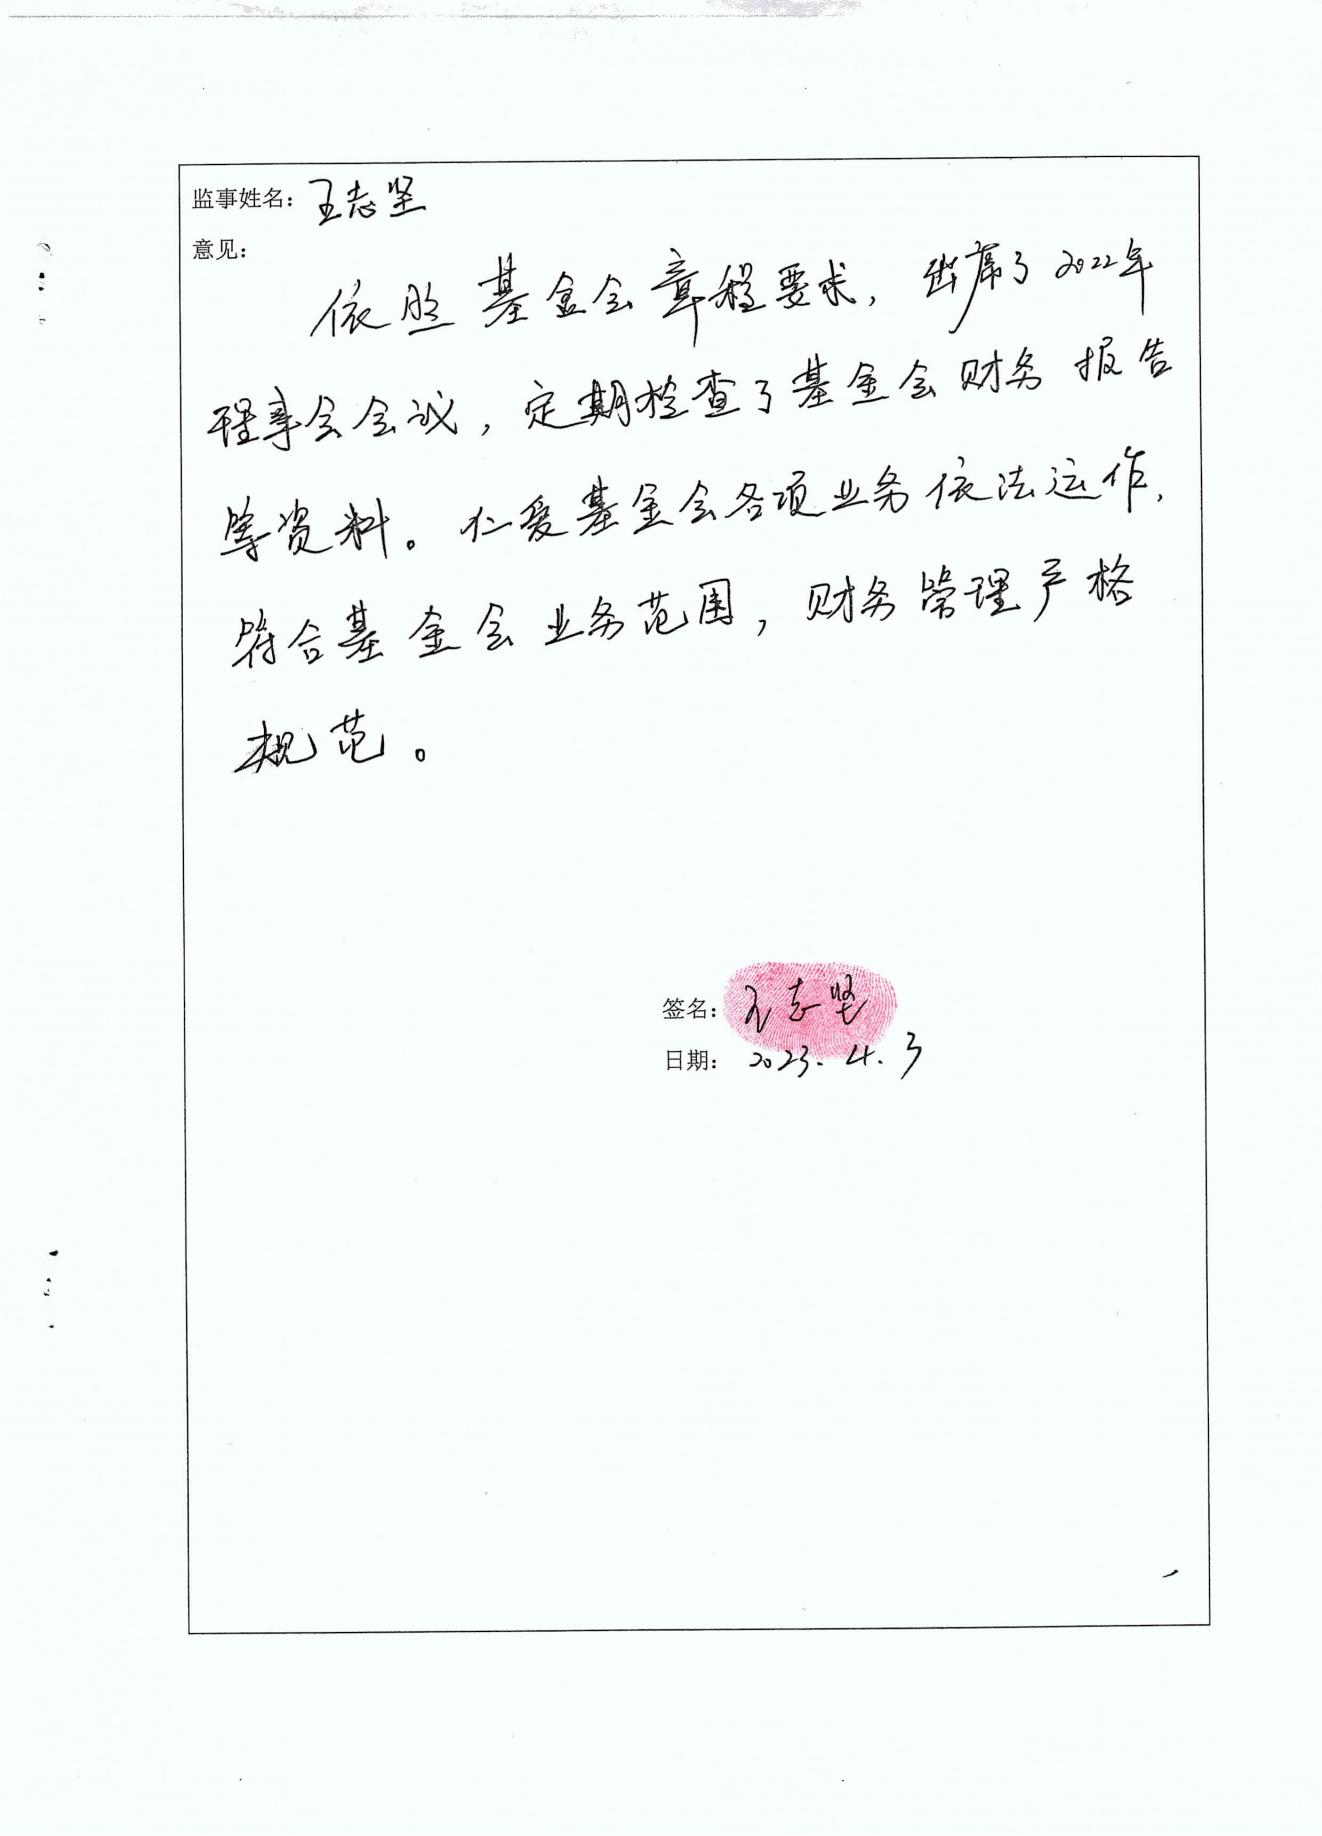 监事姓名：王志坚
意见：
依照基金会章程要求，出席了2022年
理事会会议，定期检查了基金会财务报告
等资料。仁爱基金会各项业务依法运作，
符合基金会业务范围，财务管理严格
规范。
签名：王志坚
日期：2023.4.3